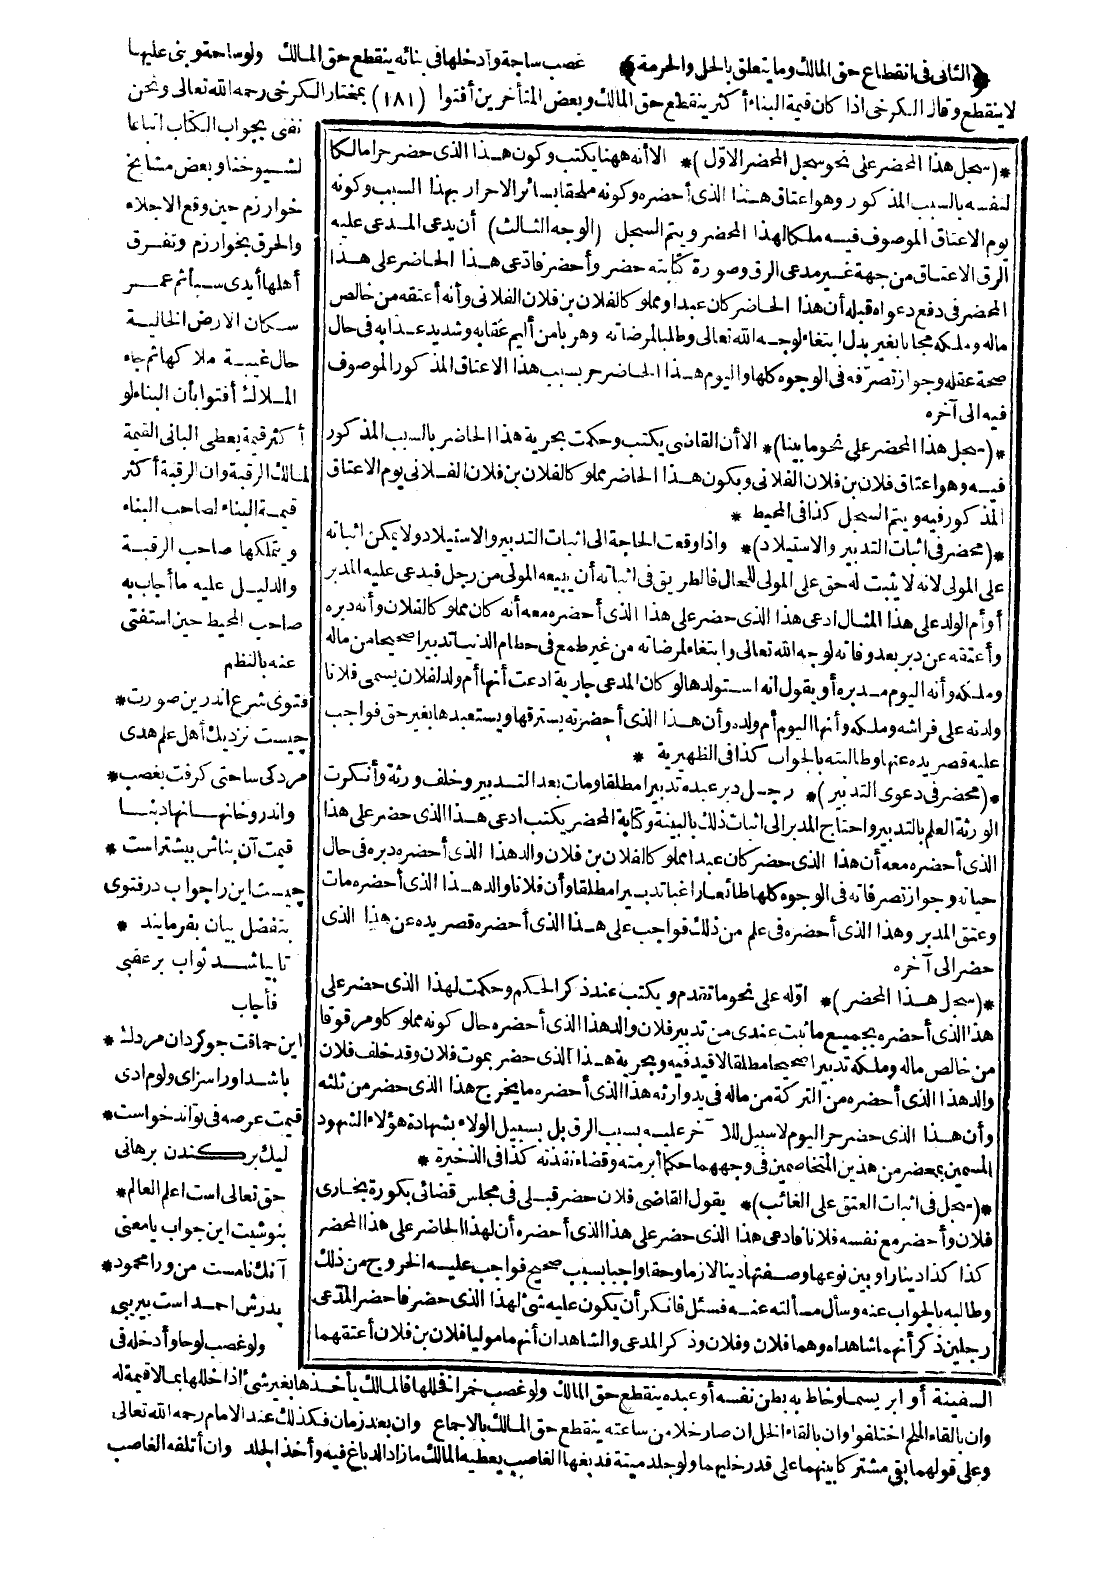 ﴿الثانى فى انقطاع حق المالك وما يتعلق بالحل والحرمة﴾ غصب ساجة وأدخلها فى بنائه ينقطع حق المالك ولو ساحة وبنى عليها
لا ينقطع وقال الكرخى اذا كان قيمة البناء أكثر ينقطع حق المالك وبعض المتأخرين أفتوا (١٨١) بمختار الكرخى رحمه الله تعالى ونحن
نفتى بجواب الكتاب اتباعا
لشيوخنا وبعض مشايخ
خوارزم حين وقع الاجلاء
والحرق بخوارزم وتفرق
أهلها أيدى سبأ ثم عمر
سكان الارض الخالية
حال غيبة ملاكها ثم جاء
الملاك أفتوا بأن البناء لو
أكثر قيمة يعطى البانى القيمة
لمالك الرقبة وان الرقبة أكثر
قيمة البناء لصاحب البناء
ويتملكها صاحب الرقبة
والدليل عليه ما أجاب به
صاحب المحيط حين استفتى
عنه بالنظم
فتوى شرع اندرين صورت *
چيست نزديك أهل علم هدى
مردكى ساحتى كرفت بغصب *
واندرو خانها نهاد بنا
قيمت آن بناش بيشتر است *
چيست اين را جواب در فتوى
بتفضل بيان بفرمايند *
تا بباشد ثواب بر عقبى
فأجاب
اين حماقت جو كردان مردك *
باشد اورا سزاى ولوم ادى
قيمت عرصه فى تواند خواست *
ليك بركندن برهانى
حق تعالى است اعلم العالم *
بنوشيت اين جواب يامعنى
آنك نامست من ورا محمود *
پدرش احمد است بى ريبى
ولو غصب لوحا وأدخله فى
*(سجل هذا المحضر على نحو سجل المحضر الاول)* الا أنه ههنا يكتب وكون هذا الذى حضر حرا مالكا
لنفسه بالسبب المذكور وهو اعتاق هذا الذى أحضره وكونه ملحقا بسائر الاحرار بهذا السبب وكونه
يوم الاعتاق الموصوف فيه ملكا لهذا المحضر ويتم السجل (الوجه الثالث) أن يدعى المدعى عليه
الرق الاعتاق من جهة غير مدعى الرق وصورة كتابته حضر وأحضر فادعى هذا الحاضر على هذا
المحضر فى دفع دعواه قبله أن هذا الحاضر كان عبدا ومملوكا لفلان بن فلان الفلانى وأنه أعتقه من خالص
ماله وملكه مجانا بغير بدل ابتغاء لوجه الله تعالى وطلبا لمرضاته وهربا من أليم عقابه وشديد عذابه فى حال
صحة عقله وجواز تصرفه فى الوجوه كلها واليوم هذا الحاضر حر بسبب هذا الاعتاق المذكور الموصوف
فيه الى آخره
*(سجل هذا المحضر على نحو ما بينا)* الا أن القاضى يكتب وحكمت بحرية هذا الحاضر بالسبب المذكور
فيه وهو اعتاق فلان بن فلان الفلانى وبكون هذا الحاضر مملوكا لفلان بن فلان الفلانى يوم الاعتاق
المذكور فيه ويتم السجل كذا فى المحيط *
*(محضر فى اثبات التدبير والاستيلاد)* واذا وقعت الحاجة الى اثبات التدبير والاستيلاد ولا يمكن اثباته
على المولى لانه لا يثبت له حق على المولى للحال فالطريق فى اثباته أن يبيعه المولى من رجل فيدعى عليه المدبر
أو أم الولد على هذا المثال ادعى هذا الذى حضر على هذا الذى أحضره معه أنه كان مملوكا لفلان وأنه دبره
وأعتقه عن دبر بعد وفاته لوجه الله تعالى وابتغاء لمرضاته من غير طمع فى حطام الدنيا تدبيرا صحيحا من ماله
وملكه وأنه اليوم مدبره أو يقول انه استولدها لو كان المدعى جارية ادعت أنها أم ولد لفلان يسمى فلانا
ولدته على فراشه وملكه وأنها اليوم أم ولده وأن هذا الذى أحضرته يسترقها ويستعبدها بغير حق فواجب
عليه قصر يده عنها وطالبته بالجواب كذا فى الظهيرية *
*(محضر فى دعوى التدبير)* رجل دبر عبده تدبيرا مطلقا ومات بعد التدبير وخلف ورثة وأنكرت
الورثة العلم بالتدبير واحتاج المدبر الى اثبات ذلك بالبينة وكتابة المحضر يكتب ادعى هذا الذى حضر على هذا
الذى أحضره معه أن هذا الذى حضر كان عبدا مملوكا لفلان بن فلان والد هذا الذى أحضره دبره فى حال
حياته وجواز تصرفاته فى الوجوه كلها طائعا راغبا تدبيرا مطلقا وأن فلانا والد هذا الذى أحضره مات
وعتق المدبر وهذا الذى أحضره فى علم من ذلك فواجب على هذا الذى أحضره قصر يده عن هذا الذى
حضر الى آخره
*(سجل هذا المحضر)* اوله على نحو ما تقدم ويكتب عند ذكر الحكم وحكمت لهذا الذى حضر على
هذا الذى أحضره بجميع ما ثبت عندى من تدبير فلان والد هذا الذى أحضره حال كونه مملوكا ومرقوقا
من خالص ماله وملكه تدبيرا صحيحا مطلقا لا قيد فيه وبحرية هذا الذى حضر بموت فلان وقد خلف فلان
والد هذا الذى أحضره من التركة من ماله فى يد وارثه هذا الذى أحضره ما يخرج هذا الذى حضر من ثلثه
وأن هذا الذى حضر حر اليوم لا سبيل للآخر عليه بسبب الرق بل بسبيل الولاء بشهادة هؤلاء الشهود
المسمين بمحضر من هذين المتخاصمين فى وجههما حكما أبرمته وقضاء نفذته كذا فى الذخيرة *
*(سجل فى اثبات العتق على الغائب)* يقول القاضى فلان حضر قبلى فى مجلس قضائى بكورة بخارى
فلان وأحضر مع نفسه فلانا فادعى هذا الذى حضر على هذا الذى أحضره أن لهذا الحاضر على هذا المحضر
كذا كذا دينارا وبين نوعها وصفتها دينا لازما وحقا واجبا بسبب صحيح فواجب عليه الخروج من ذلك
وطالبه بالجواب عنه وسأل مسألته عنه فسئل فانكر أن يكون عليه شئ لهذا الذى حضر فاحضر المدعى
رجلين ذكر أنهما شاهداه وهما فلان وفلان وذكر المدعى والشاهدان أنهما موليا فلان بن فلان أعتقهما
السفينة أو ابريسما وخاط به بطن نفسه أو عبده ينقطع حق المالك ولو غصب خمرا فخللها فالمالك يأخذها بغير شئ اذا خللها بما لا قيمة له
وان بالقاء الملح اختلفوا وان بالقاء الخل ان صار خلا من ساعته ينقطع حق المالك بالاجماع وان بعد زمان فكذلك عند الامام رحمه الله تعالى
وعلى قولهما بقى مشتركا بينهما على قدر خليهما ولو جلد ميتة فدبغها الغاصب يعطيه المالك ما زاد الدباغ فيه وأخذ الجلد وان أتلفه الغاصب